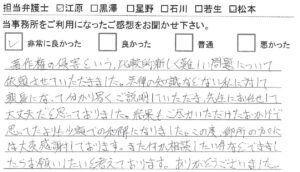 担当弁護士 ☑江原 □黒澤 □星野 □石川 □若生 □松本
当事務所をご利用になったご感想をお聞かせ下さい。
☑ 非常に良かった □ 良かった □ 普通 □ 悪かった
著作権の侵害という、比較的新しく難しい問題について
依頼させていただきました。法律の知識などない私に対して
親身になって分かり易くご説明していただき、先生にお任せして
大丈夫だと思っておりました。結果もご尽力いただけたおかげで
思ってたよりも少額での和解になりました。この度、御所の方々に
は大変感謝しております。また何か相談したい件などできまし
たらお願いしたいと考えております。ありがとうございました。